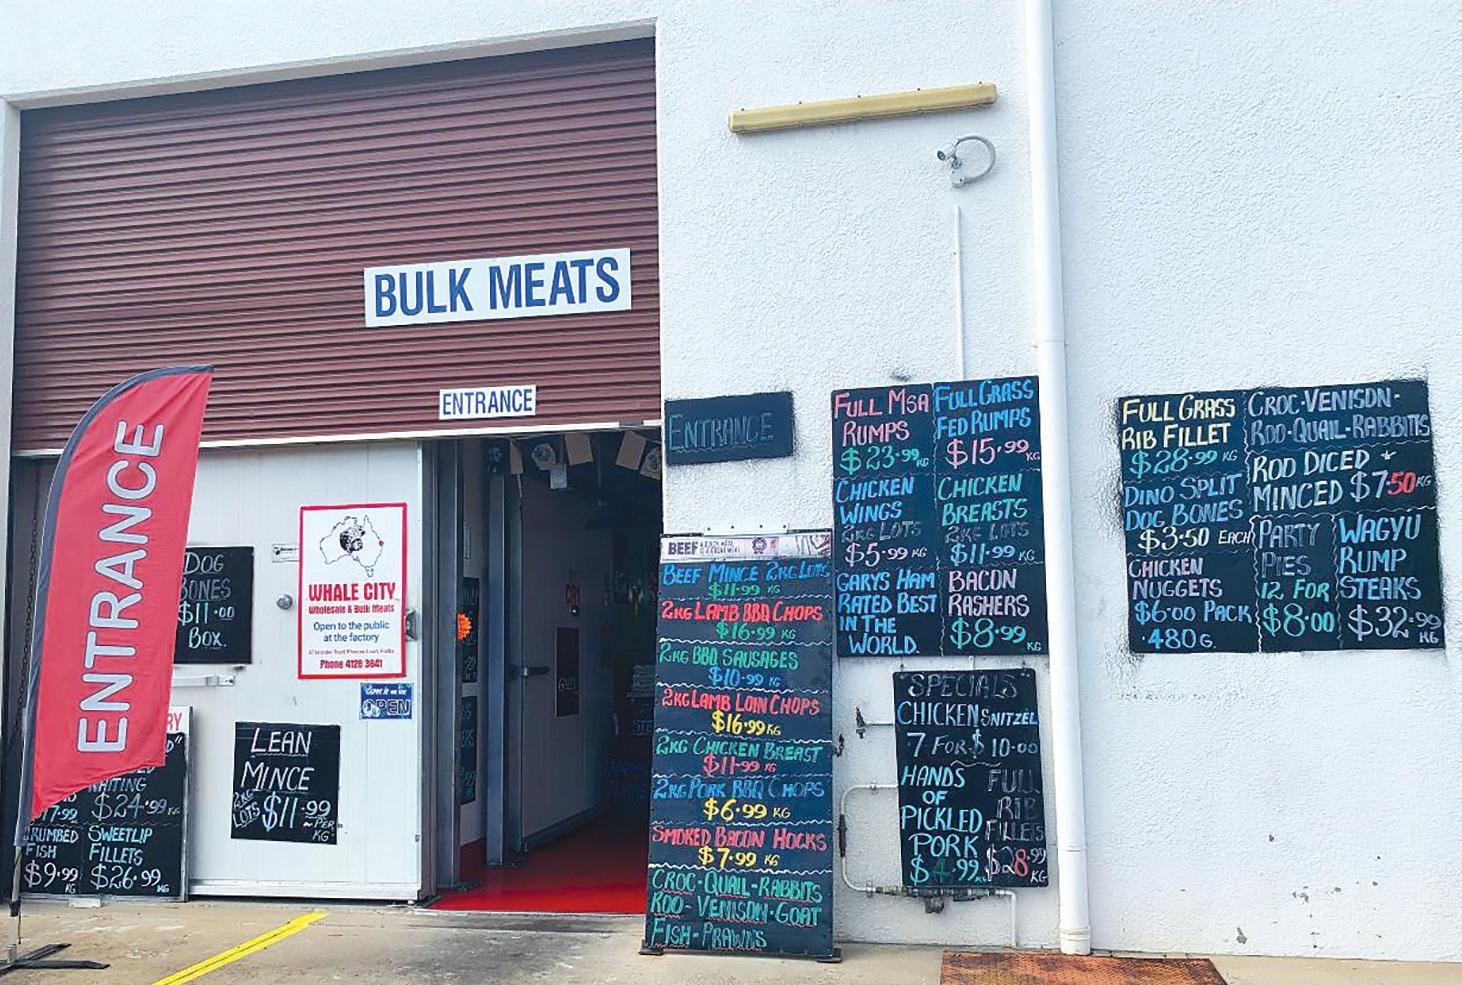 BULK MEATS
ENTRANCE
ENTRANCE
ENTRANCE
DOG
BONES
$11.00
BOX.
WHALE CITY
Wholesale & Bulk Meats
Open to the public
at the factory
Phone 4128 3641
OPEN
LEAN
MINCE
2KG
LOTS
$11.99
PER
KG
$24.99 KG
17.99
KG
CRUMBED
FISH
$9.99
KG
SWEETLIP
FILLETS
$26.99
KG
BEEF
BEEF MINCE 2KG LOTS
$11.99 KG
2KG LAMB BBQ CHOPS
$16.99 KG
2KG BBQ SAUSAGES
$10.99 KG
2KG LAMB LOIN CHOPS
$16.99 KG
2KG CHICKEN BREAST
$11.99 KG
2KG PORK BBQ CHOPS
$6.99 KG
SMOKED BACON HOCKS
$7.99 KG
CROC-QUAIL-RABBITS
ROO-VENISON-GOAT
FISH-PRAWNS
FULL MSA
RUMPS
$23.99 KG
CHICKEN
WINGS
2KG LOTS
$5.99 KG
GARYS HAM
RATED BEST
IN THE
WORLD.
FULL GRASS
FED RUMPS
$15.99
KG
CHICKEN
BREASTS
2KG LOTS
$11.99 KG
BACON
RASHERS
$8.99
KG
SPECIALS
CHICKEN SNITZEL
7 FOR $10.00
HANDS
OF
PICKLED
PORK
$4.99 KG
FULL
RIB
FILLETS
$28.99
KG
FULL GRASS
RIB FILLET
$28.99 KG
DINO SPLIT
DOG BONES
$3.50 EACH
CHICKEN
NUGGETS
$6.00 PACK
.480G.
CROC-VENISON-
ROO-QUAIL-RABBITS
ROO DICED +
MINCED $7.50 KG
PARTY
PIES
12 FOR
$8.00
WAGYU
RUMP
STEAKS
$32.99
KG